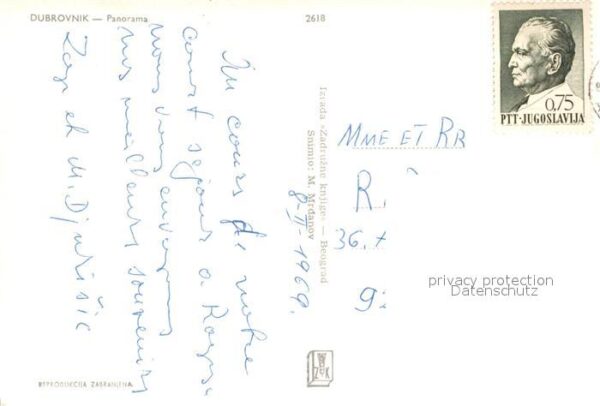 DUBROVNIK — Panorama
2618
Au cours de notre
court séjour a
nous vous envoyons
nos meilleurs souvenirs
et M. Djurisic
8-II-1969.
Izrada »Zadružne knjige« — Beograd
Snimio: M. Mrđanov
0,75
PTT·JUGOSLAVIJA
MME ET
R.
36.
privacy protection
Datenschutz
REPRODUKCIJA ZABRANJENA